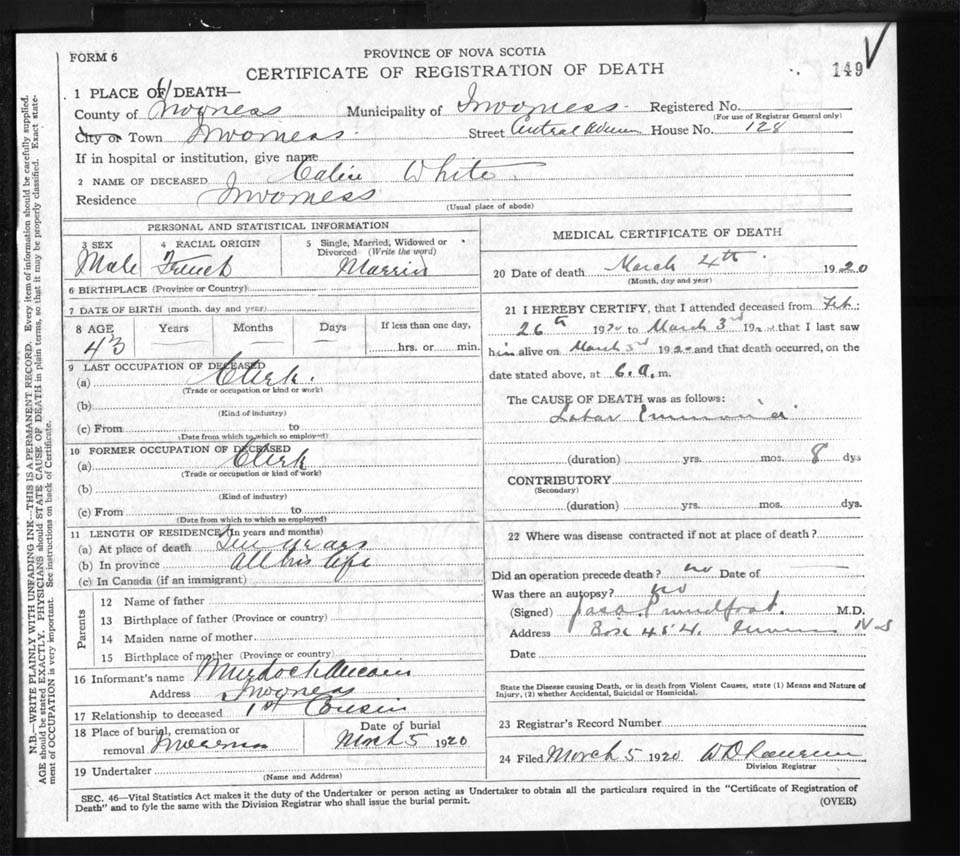 FORM 6
PROVINCE OF NOVA SCOTIA
CERTIFICATE OF REGISTRATION OF DEATH
149
1 PLACE OF DEATH—
County of Inverness Municipality of Inverness Registered No.
(For use of Registrar General only)
City or Town Inverness Street Central Avenue House No. 128
If in hospital or institution, give name
2 NAME OF DECEASED White
Residence Inverness
(Usual place of abode)
PERSONAL AND STATISTICAL INFORMATION
3 SEX Male
4 RACIAL ORIGIN French
5 Single, Married, Widowed or Divorced (Write the word) Married
6 BIRTHPLACE (Province or Country)
7 DATE OF BIRTH (month, day and year)
8 AGE Years Months Days If less than one day,
43 hrs. or min.
9 LAST OCCUPATION OF DECEASED
(a) Clerk.
(Trade or occupation or kind or work)
(b)
(Kind of industry)
(c) From to
(Date from which to which so employed)
10 FORMER OCCUPATION OF DECEASED
(a) Clerk
(Trade or occupation or kind of work)
(b)
(Kind of industry)
(c) From to
(Date from which to which so employed)
11 LENGTH OF RESIDENCE (In years and months)
(a) At place of death years
(b) In province all his life
(c) In Canada (if an immigrant)
Parents
12 Name of father
13 Birthplace of father (Province or country)
14 Maiden name of mother
15 Birthplace of mother (Province or country)
16 Informant's name Murdoch Aucoin
Address Inverness
17 Relationship to deceased 1st Cousin
18 Place of burial, cremation or removal Inverness
Date of burial March 5 1920
19 Undertaker
(Name and Address)
MEDICAL CERTIFICATE OF DEATH
20 Date of death March 4th 1920
(Month, day and year)
21 I HEREBY CERTIFY, that I attended deceased from Feb.
26th 1920 to March 3rd 1920 that I last saw
him alive on March 3rd 1920 and that death occurred, on the
date stated above, at 6.a.m.
The CAUSE OF DEATH was as follows:
Lobar
(duration) yrs. mos. 8 dys
CONTRIBUTORY
(Secondary)
(duration) yrs. mos. dys.
22 Where was disease contracted if not at place of death?
Did an operation precede death? no Date of
Was there an autopsy? no
(Signed) M.D.
Address Box 454. N-S
Date
State the Disease causing Death, or in death from Violent Causes, state (1) Means and Nature of
Injury, (2) whether Accidental, Suicidal or Homicidal.
23 Registrar's Record Number
24 Filed March 5 1920
Division Registrar
SEC. 46—Vital Statistics Act makes it the duty of the Undertaker or person acting as Undertaker to obtain all the particulars required in the "Certificate of Registration of
Death" and to fyle the same with the Division Registrar who shall issue the burial permit.
(OVER)
N.B.—WRITE PLAINLY WITH UNFADING INK—THIS IS A PERMANENT RECORD. Every item of information should be carefully supplied.
AGE should be stated EXACTLY. PHYSICIANS should STATE CAUSE OF DEATH in plain terms, so that it may be properly classified. Exact state-
ment of OCCUPATION is very important. See instructions on back of Certificate.